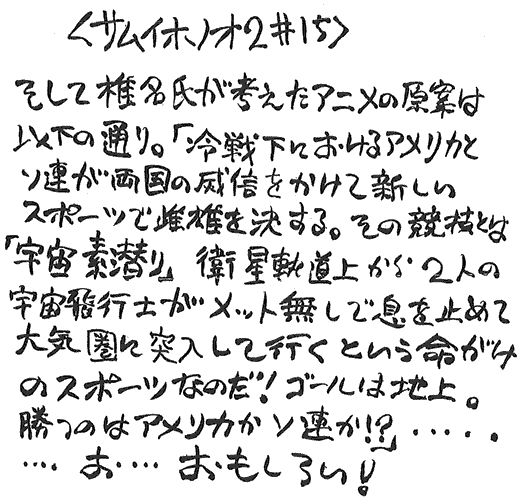 <サムイホノオ2#15>
そして椎名氏が考えたアニメの原案は
以下の通り。「冷戦下におけるアメリカと
ソ連が両国の威信をかけて新しい
スポーツで雌雄を決する。その競技とは
「宇宙素潜り」衛星軌道上から2人の
宇宙飛行士がメット無しで息を止めて
大気圏に突入して行くという命がけ
のスポーツなのだ!ゴールは地上。
勝つのはアメリカかソ連か!?」・・・・・
・・・・お・・・・おもしろい!